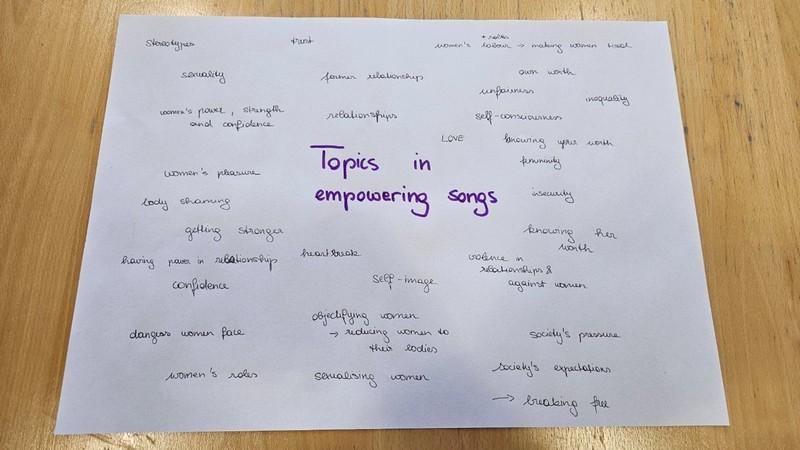 stereotypes
trust
+ roles
women's labour → making women tired
sexuality
former relationship
own worth
unfairness
inequality
women's power, strength
and confidence
relationships
self-consciousness
LOVE
knowing your worth
femininity
Topics in
empowering songs
women's pleasure
body shaming
insecurity
getting stronger
knowing her
worth
having power in relationships
heartbreak
violence in
relationships &
against women
confidence
self-image
objectifying women
→ reducing women to
their bodies
dangers women face
society's pressure
women's roles
sexualising women
society's expectations
→ breaking free